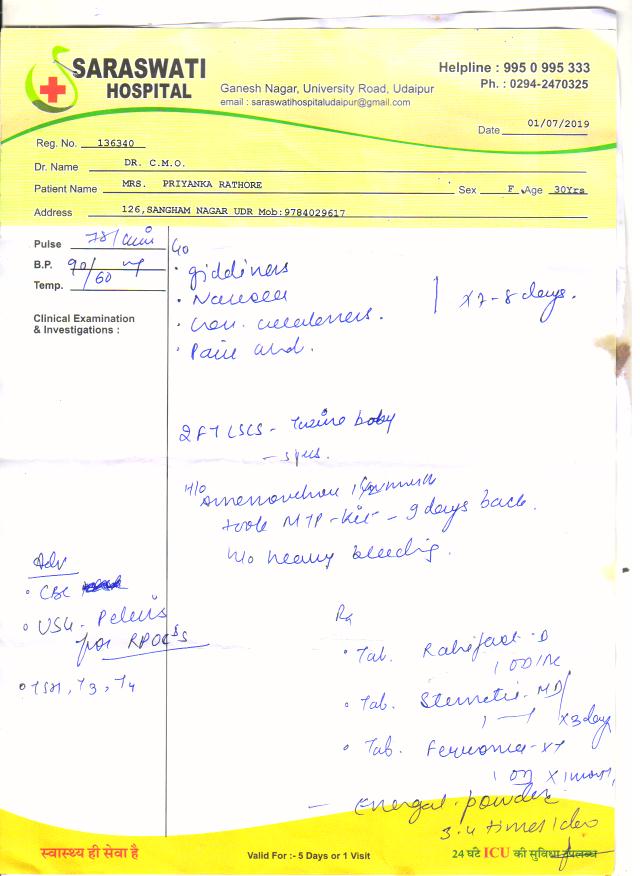 SARASWATI
HOSPITAL
Helpline : 995 0 995 333
Ph. : 0294-2470325
Ganesh Nagar, University Road, Udaipur
email : saraswatihospitaludaipur@gmail.com
Date 01/07/2019
Reg. No. 136340
Dr. Name DR. C.M.O.
Patient Name MRS. PRIYANKA RATHORE Sex F Age 30Yrs
Address 126,SANGHAM NAGAR UDR Mob:9784029617
Pulse 78/min
B.P. 90/60
Temp.
Clinical Examination
& Investigations :
C/o
• giddiness
• Nausea
• weakness.
• Pain abd.
x 7-8 days.
2 FT LSCS - baby
- 5 yrs.
H/o
took MTP-Kit - 9 days back.
H/o heavy bleeding.
Adv
• CBC
• USG - Pelvis
for RPOC's
• TSH, T3, T4
Rx
• Tab. - D
1 OD
• Tab. Stemetil - MD
1 — 1 x 3 day
• Tab. - XT
1 OD x 1 month
- Energal powder
3-4 times/day
स्वास्थ्य ही सेवा है
Valid For :- 5 Days or 1 Visit
24 घंटे ICU की सुविधा उपलब्ध